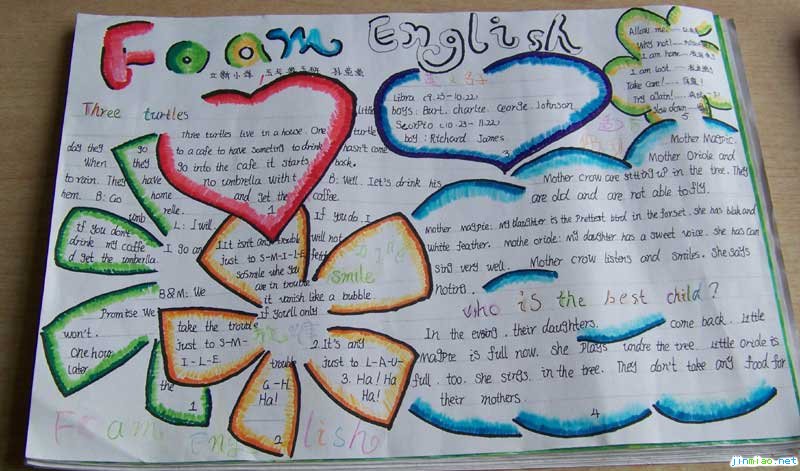 Foam English
Three turtles
Three turtles live in a house. One
day they go to a cafe to have someting to drink
When they go into the cafe it starts
to rain. They have no umbrella with t
hem. B: Go home and get the
umb
relle.
L: I will
little
turtle
hasn't come
back.
B: Well. Let's drink his
coffee
If you do. I
will not
1
if you don't
drink my coffe
d get the umbrella.
I go an
B&M: We
Promise We
won't.
One hour
later
the
1
1.It isn't any trouble
just to S-M-I-L-E
So smile when you
are in trouble
it vanish like a bubble
If you'll only
take the trouble
just to S-M-
I-L-E
smile
2.It's any
trouble
just to L-A-U-
G-H
3. Ha! Ha
Ha!
Ha!
2
Foam English
Libra (9.23-10.22)
boys: Bart. charlie. Ceorge Johnson
Scorpio (10.23-11.22)
boy: Richard James
3
Allow me.
Why not!
I am home
I am lost.
Take care!
Try again!
Slow down
5
Mother Magpie.
Mother Oriole and
Mother crow are sitting up in the tree. They
are old and are not able to fly.
Mother magpie: my daughter is the Prettest bird in the forset. she has blak and
white feather. mothe oriole: my daughter has a sweet voice. she has can
sing very well. Mother crow listers and smiles. She says
noting.
who is the best child?
In the evsing. their daughters. come back. Little
magpie is full now. she plays undre the tree. Little oriole is
full. too. she strgs. in the tree. They don't take any food for
their mothers.
4
jinmiao.net